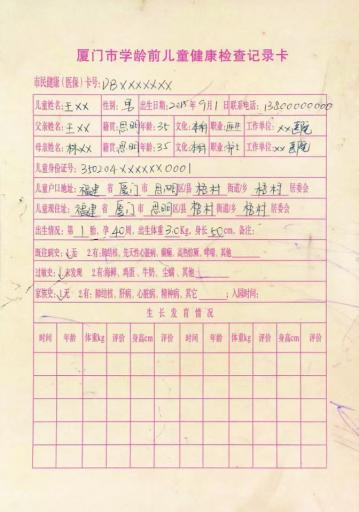 厦门市学龄前儿童健康检查记录卡
市民健康（医保）卡号：DBXXXXXXX
儿童姓名：王XX 性别：男 出生日期：2015年9月1日 联系电话：13800000000
父亲姓名：王XX 籍贯：思明 年龄：35 文化：本科 职业：医生 工作单位：XX医院
母亲姓名：林XX 籍贯：思明 年龄：35 文化：本科 职业：护士 工作单位：XX医院
儿童身份证号：350204XXXXXX0001
儿童户口地址：福建省厦门市思明区/县梧村街道/乡梧村居委会
儿童现住址：福建省厦门市思明区/县梧村街道/乡梧村居委会
出生情况：第1胎，孕40周，出生体重3.0Kg，身长50cm，备注：
既往病史：1.无 2.有：肺结核，先天性心脏病，癫痫，高热惊厥，哮喘，其他
过敏史：1.未发现 2.有：海鲜、鸡蛋、牛奶、尘螨、其他
家族史：1.无 2.有：肺结核，肝病，心脏病，精神病，其它 ；入园时间：
生长发育情况
时间 年龄 体重kg 评价 身高cm 评价 时间 年龄 体重kg 评价 身高cm 评价